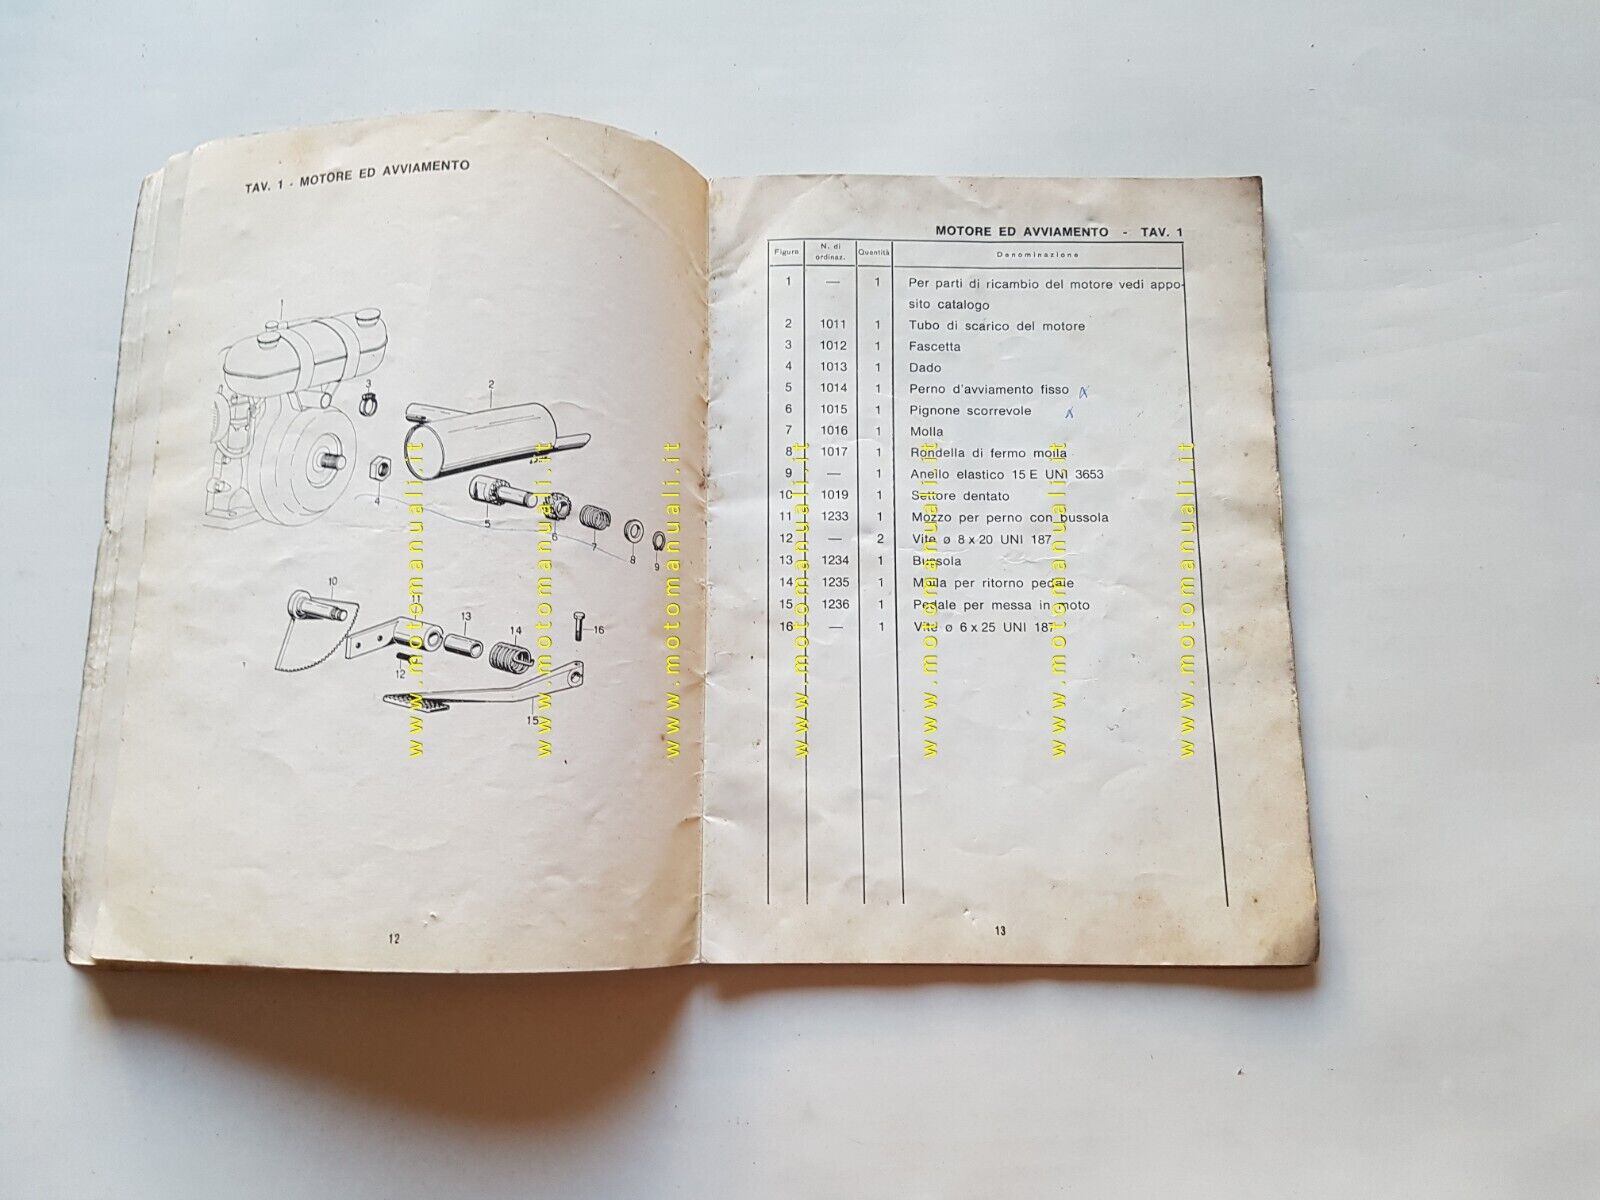 TAV. 1 - MOTORE ED AVVIAMENTO
1
3
2
4
5
6
7
8
9
10
13
14
16
12
15
12
MOTORE ED AVVIAMENTO - TAV. 1
Figura N. di ordinaz. Quantità Denominazione
1 — 1 Per parti di ricambio del motore vedi appo-
sito catalogo
2 1011 1 Tubo di scarico del motore
3 1012 1 Fascetta
4 1013 1 Dado
5 1014 1 Perno d'avviamento fisso x
6 1015 1 Pignone scorrevole x
7 1016 1 Molla
8 1017 1 Rondella di fermo molla
9 — 1 Anello elastico 15 E UNI 3653
10 1019 1 Settore dentato
11 1233 1 Mozzo per perno con bussola
12 — 2 Vite ø 8 x 20 UNI 187
13 1234 1 Bussola
14 1235 1 Molla per ritorno pedale
15 1236 1 Pedale per messa in moto
16 — 1 Vite ø 6 x 25 UNI 187
13
www.motomanuali.it
www.motomanuali.it
www.motomanuali.it
www.motomanuali.it
www.motomanuali.it
www.motomanuali.it
www.motomanuali.it